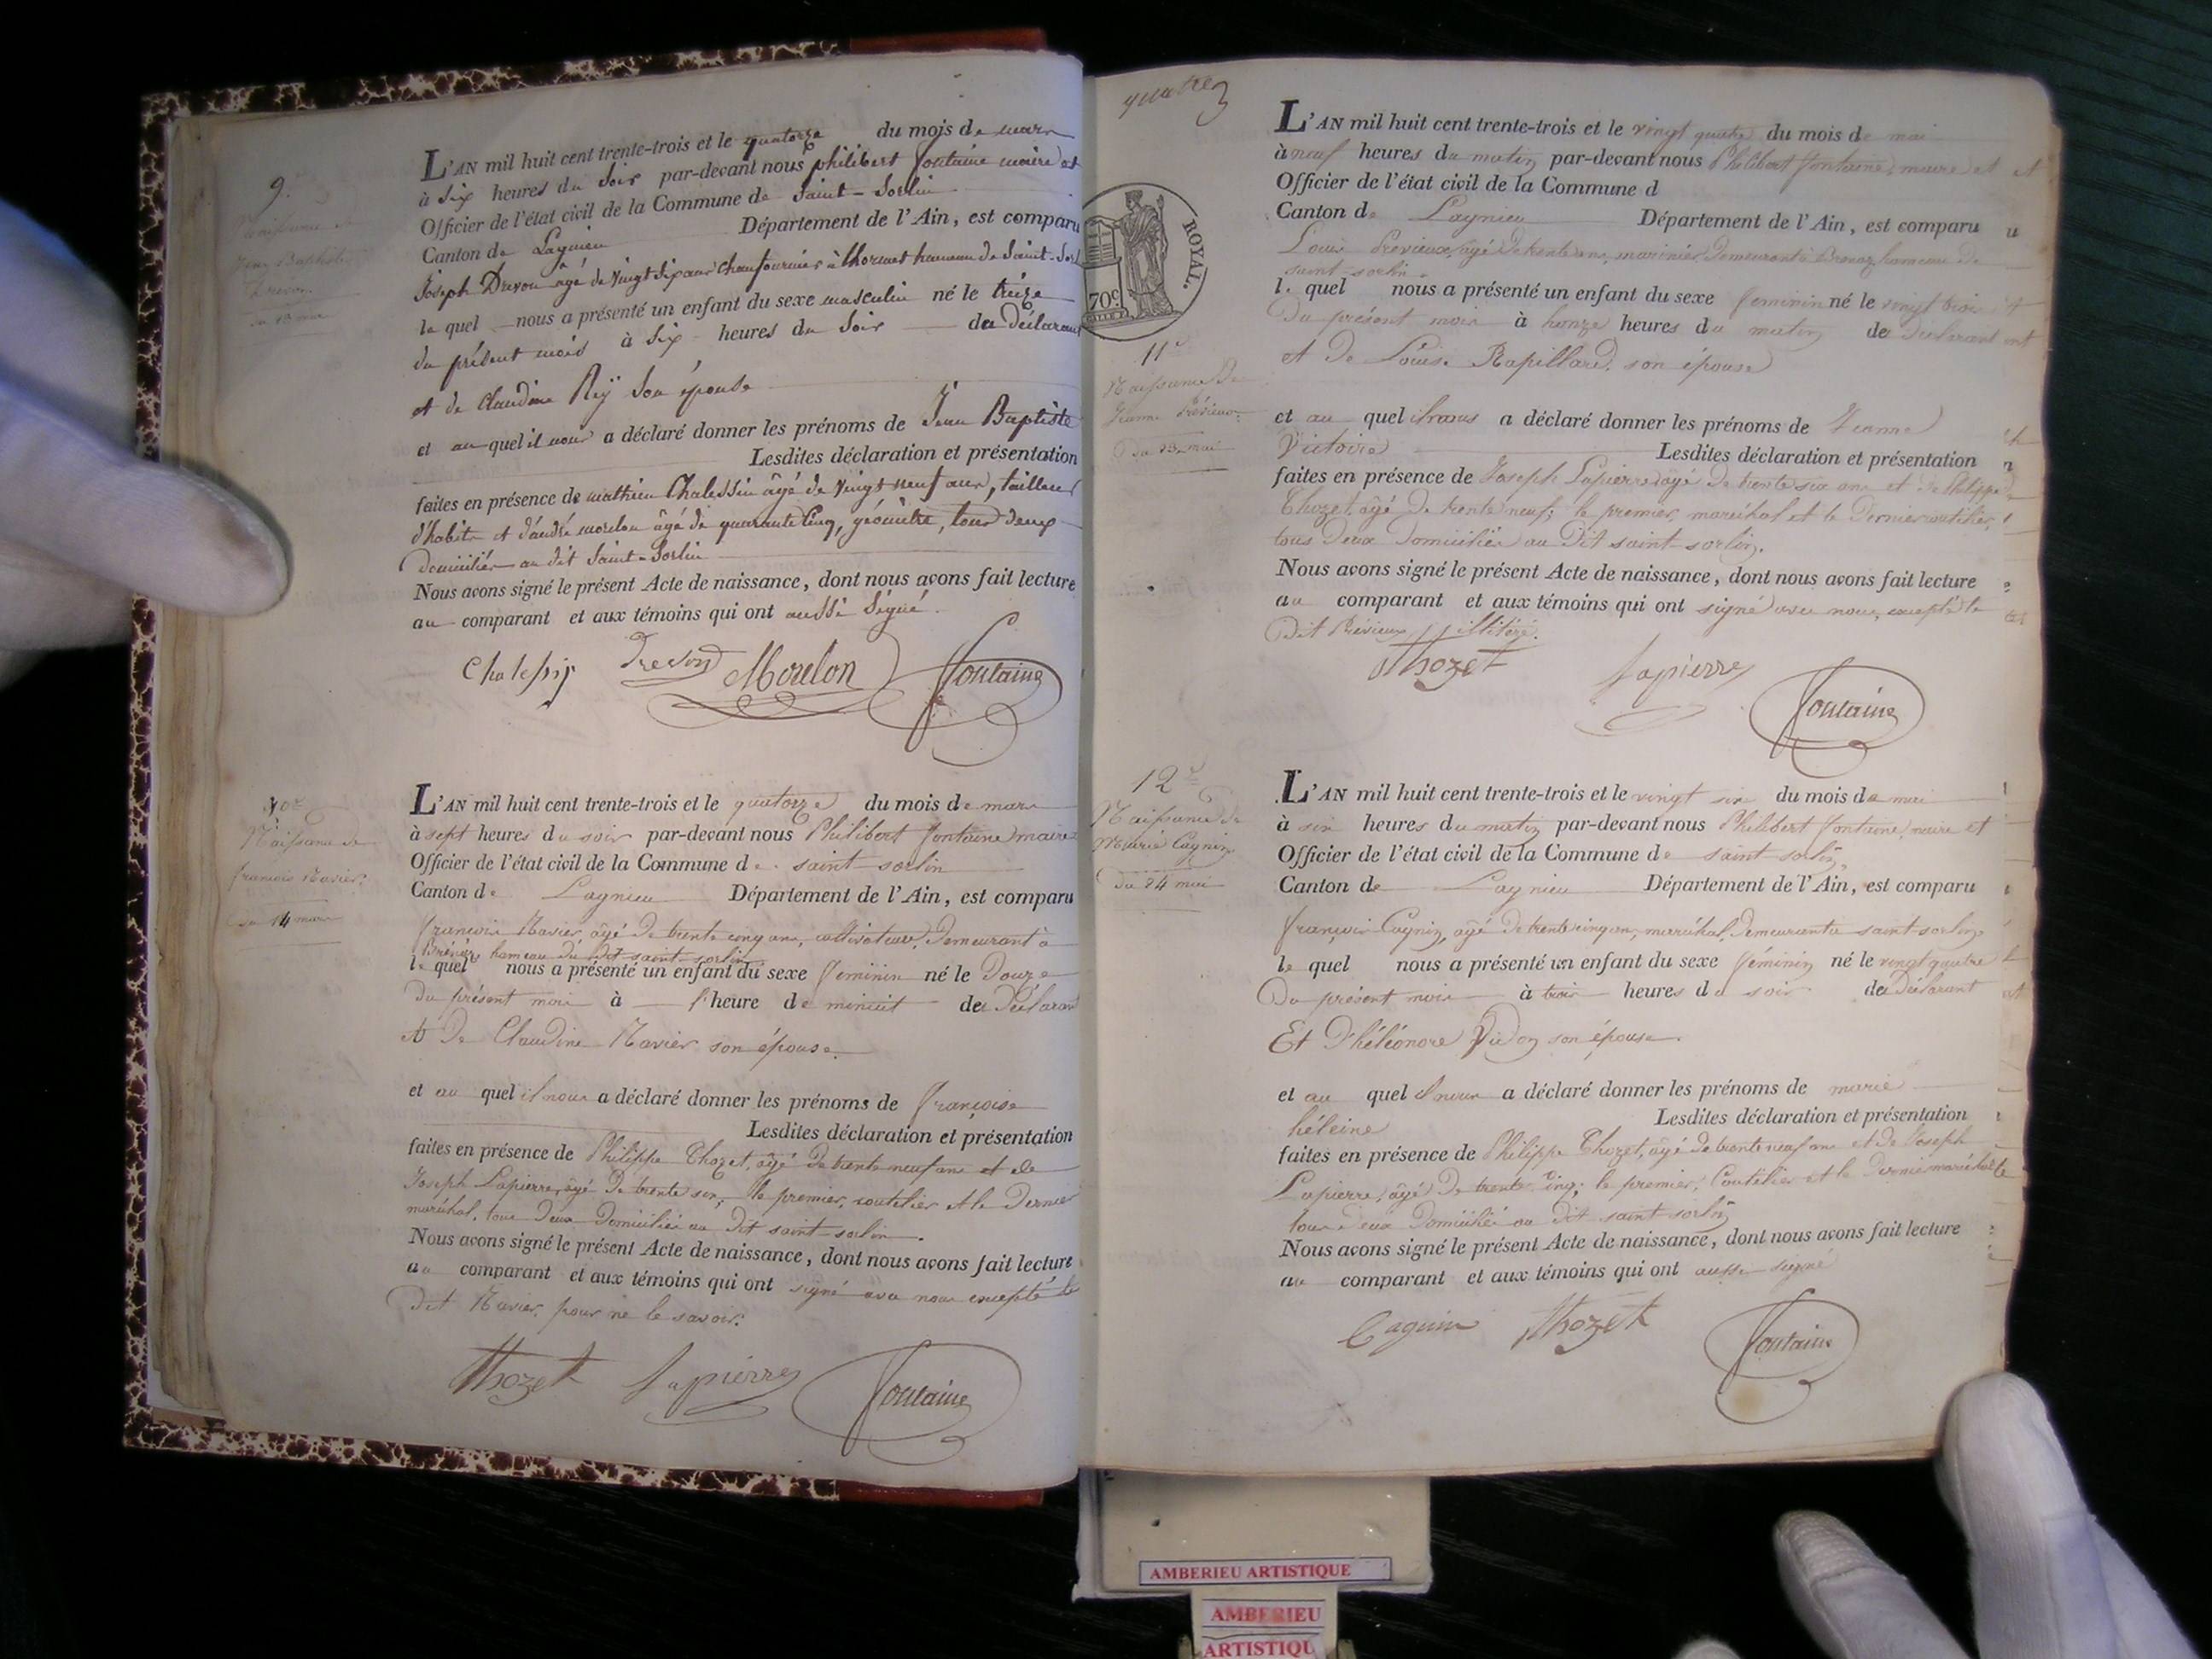 9.
Jean Baptiste
Drevon
L'AN mil huit cent trente-trois et le quatorze du mois de mars
à six heures du soir par-devant nous philibert fontaine maire et
Officier de l'état civil de la Commune de Saint-Sorlin
Canton de Lagnieu Département de l'Ain, est comparu
Joseph Drevon âgé de vingt six ans chaufournier à hameau de Saint-Sorl
le quel nous a présenté un enfant du sexe masculin né le treize
du présent mois à six heures du soir de déclarant
et de Claudine Reÿ son épouse
et au quel il nous a déclaré donner les prénoms de Jean Baptiste
Lesdites déclaration et présentation
faites en présence de mathieu Chalessin âgé de vingt neuf ans, tailleur
d'habits et d'andré morelon âgé de quarante cinq, géomètre, tous deux
domiciliés au dit Saint-Sorlin
Nous avons signé le présent Acte de naissance, dont nous avons fait lecture
au comparant et aux témoins qui ont aussi signé.
Chalessin Drevon Morelon Fontaine
10e
Naissance de
françoise Navier
du 14 mars
L'AN mil huit cent trente-trois et le quatorze du mois de mars
à sept heures du soir par-devant nous Philibert fontaine maire
Officier de l'état civil de la Commune de saint-sorlin
Canton de Lagnieu Département de l'Ain, est comparu
françois Navier, âgé de trente cinq ans, cultivateur, demeurant à
hameau du dit saint-sorlin
le quel nous a présenté un enfant du sexe féminin né le douze
du présent mois à l'heure de minuit de déclarant
et de Claudine Navier son épouse.
et au quel il nous a déclaré donner les prénoms de françoise
Lesdites déclaration et présentation
faites en présence de Philippe Thozet, âgé de trente neuf ans et de
Joseph Lapierre, âgé de trente six; le premier, coutelier et le dernier
maréchal, tous deux domiciliés au dit saint-sorlin.
Nous avons signé le présent Acte de naissance, dont nous avons fait lecture
au comparant et aux témoins qui ont signé avec nous excepté le
dit Navier, pour ne le savoir.
Thozet Lapierre Fontaine
quatre
ROYAL.
70c
11e
Naissance de
Jeanne Prévieux
du 23 mai
L'AN mil huit cent trente-trois et le vingt quatre du mois de mai
à neuf heures du matin par-devant nous Philibert fontaine, maire et
Officier de l'état civil de la Commune d
Canton de Lagnieu Département de l'Ain, est comparu
Louis Prévieux, âgé de trente ans, marinier, demeurant à hameau de
saint-sorlin.
le quel nous a présenté un enfant du sexe féminin né le vingt trois
du présent mois à honze heures du matin de déclarant
et de Louise Rapillard, son épouse
et au quel il nous a déclaré donner les prénoms de Jeanne
Victoire Lesdites déclaration et présentation
faites en présence de Joseph Lapierre, âgé de trente six ans et de Philippe
Thozet, âgé de trente neuf; le premier, maréchal et le dernier coutelier,
tous deux domiciliés au dit saint-sorlin.
Nous avons signé le présent Acte de naissance, dont nous avons fait lecture
au comparant et aux témoins qui ont signé avec nous, excepté le
dit Prévieux illitéré.
Thozet Lapierre Fontaine
12e
Naissance de
Marie Cagnin
du 24 mai
L'AN mil huit cent trente-trois et le vingt six du mois de mai
à six heures du matin par-devant nous Philibert fontaine, maire et
Officier de l'état civil de la Commune de saint-sorlin
Canton de Lagnieu Département de l'Ain, est comparu
françois Cagnin, âgé de trente cinq ans, maréchal, demeurant à saint-sorlin
le quel nous a présenté un enfant du sexe féminin né le vingt quatre
du présent mois à trois heures du soir de déclarant
Et d'héléonore son épouse.
et au quel il nous a déclaré donner les prénoms de marie
héleine Lesdites déclaration et présentation
faites en présence de Philippe Thozet, âgé de trente neuf ans et de Joseph
Lapierre, âgé de trente cinq; le premier, Coutelier et le dernier maréchal
tous deux domiciliés au dit saint-sorlin
Nous avons signé le présent Acte de naissance, dont nous avons fait lecture
au comparant et aux témoins qui ont aussi signé
Cagnin Thozet Fontaine
AMBERIEU ARTISTIQUE
AMBERIEU
ARTISTIQU